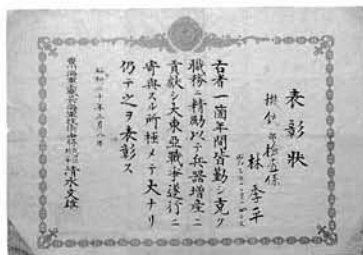 表彰状
林 李平
右者一箇年間皆勤シ克ク
職務ニ精励以テ兵器増産ニ
貢献シ大東亜戦争遂行ニ
寄与スル所極メテ大ナリ
仍テ之ヲ表彰ス
昭和二十年三月八日
清水文雄